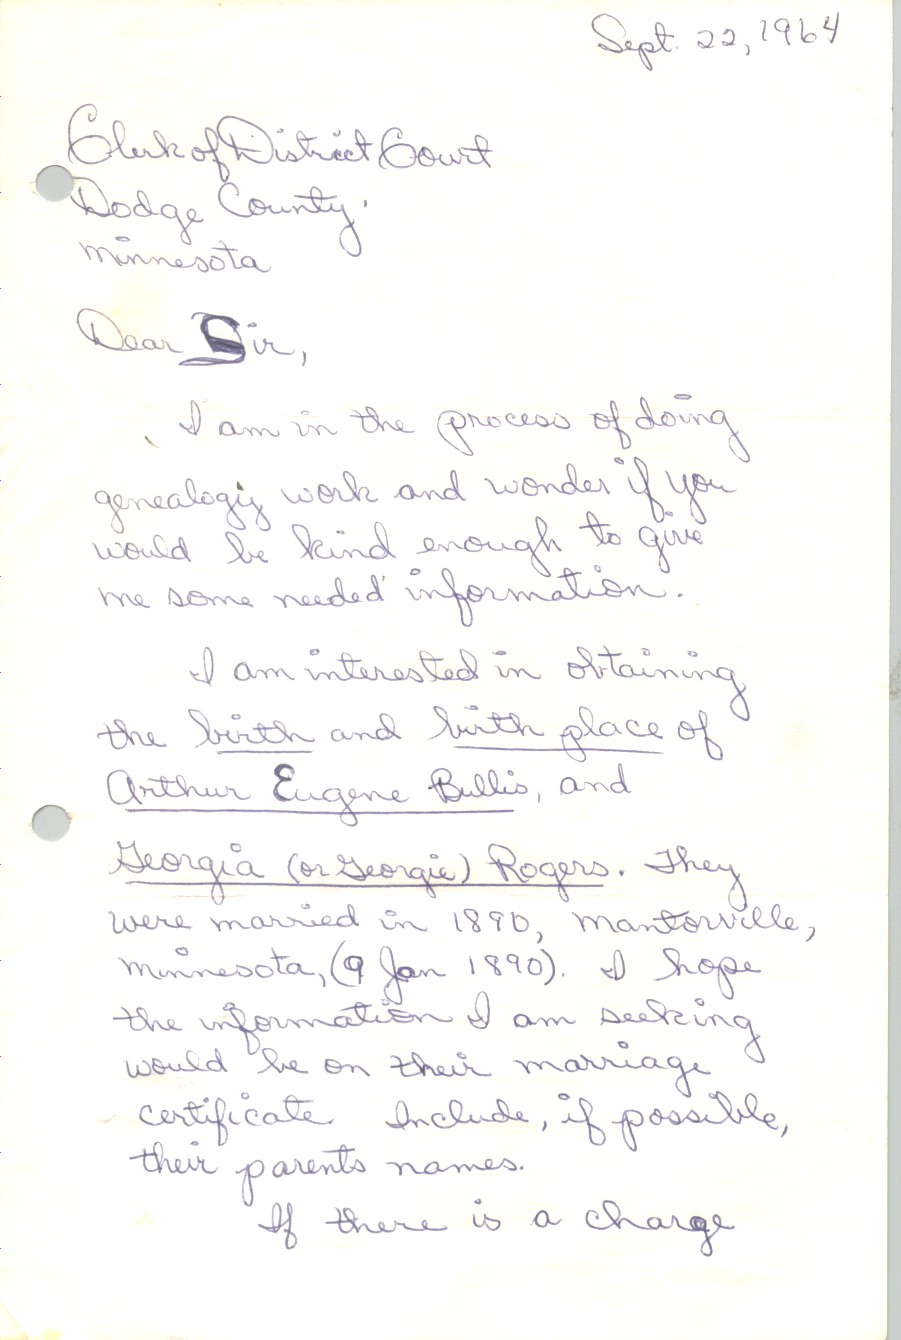 Sept. 22, 1964
Clerk of District Court
Dodge County,
Minnesota
Dear Sir,
I am in the process of doing
genealogy work and wonder if you
would be kind enough to give
me some needed information.
I am interested in obtaining
the birth and birth place of
Arthur Eugene Bullis, and
Georgia (or Georgie) Rogers. They
were married in 1890, Mantorville,
Minnesota, (9 Jan 1890). I hope
the information I am seeking
would be on their marriage
certificate. Include, if possible,
their parents names.
If there is a charge